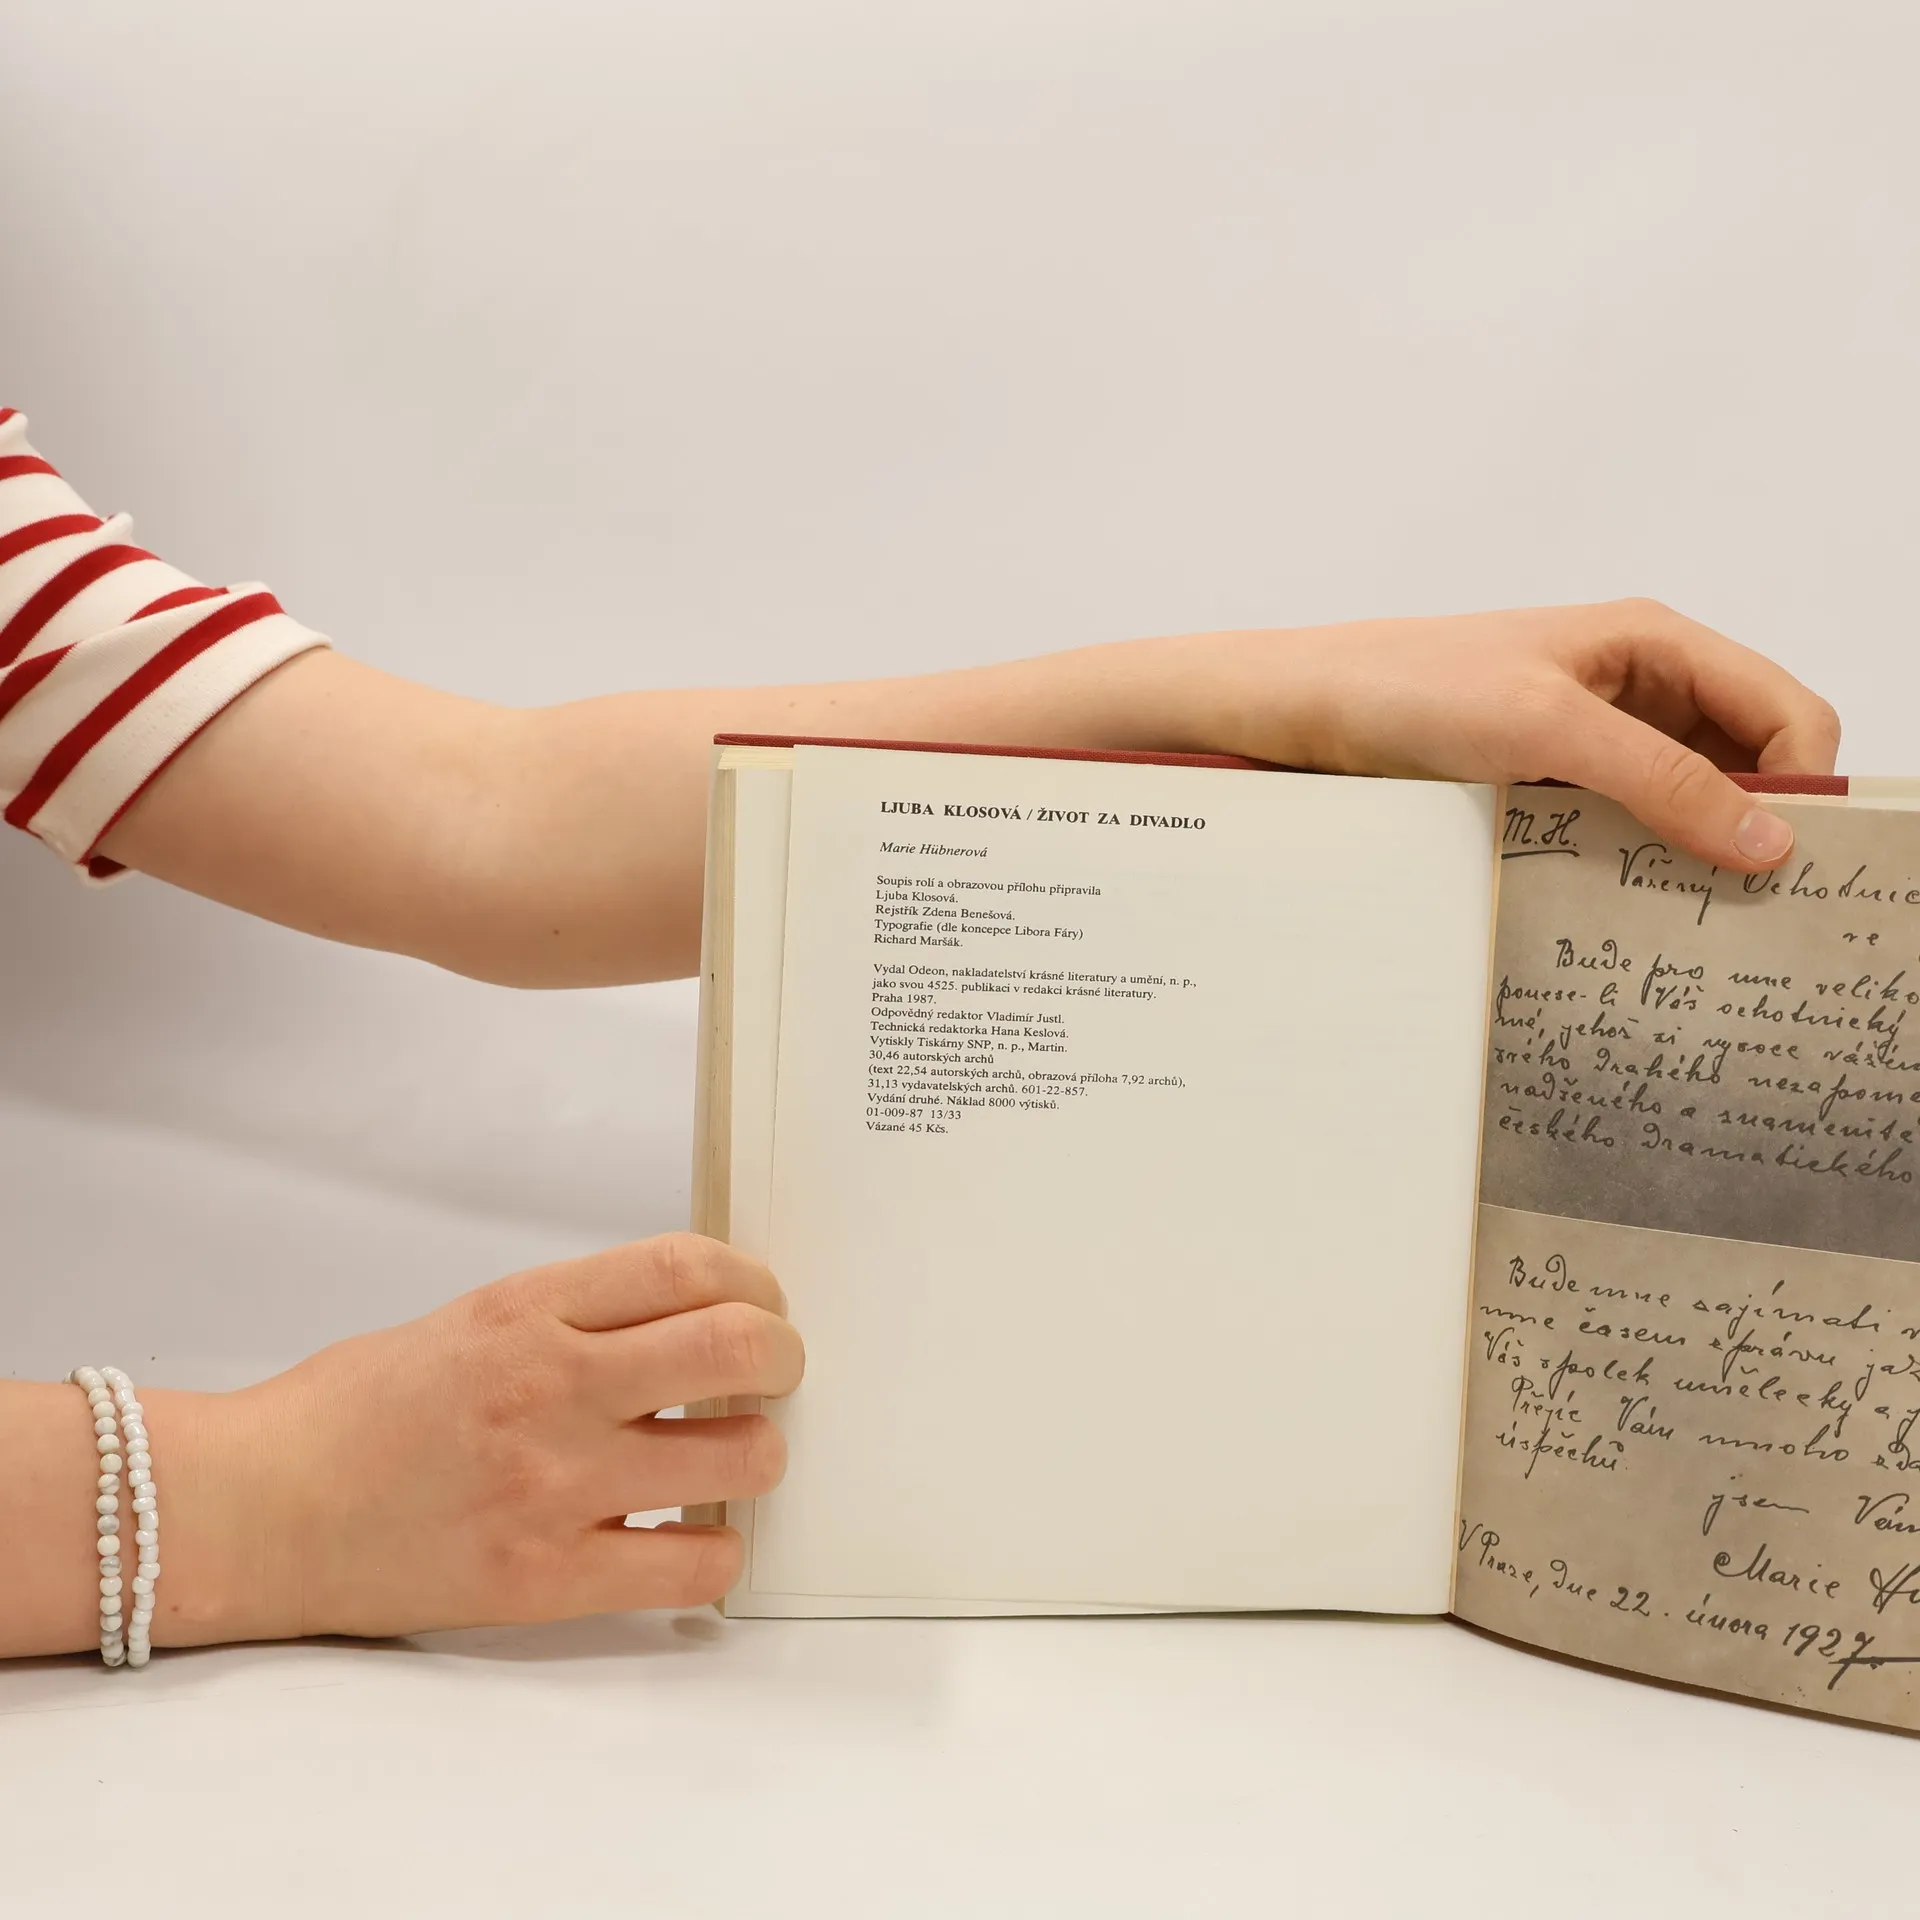 LJUBA KLOSOVÁ / ŽIVOT ZA DIVADLO
Marie Hübnerová
Soupis rolí a obrazovou přílohu připravila
Ljuba Klosová.
Rejstřík Zdena Benešová.
Typografie (dle koncepce Libora Fáry)
Richard Maršák.
Vydal Odeon, nakladatelství krásné literatury a umění, n. p.,
jako svou 4525. publikaci v redakci krásné literatury.
Praha 1987.
Odpovědný redaktor Vladimír Justl.
Technická redaktorka Hana Keslová.
Vytiskly Tiskárny SNP, n. p., Martin.
30,46 autorských archů
(text 22,54 autorských archů, obrazová příloha 7,92 archů),
31,13 vydavatelských archů. 601-22-857.
Vydání druhé. Náklad 8000 výtisků.
01-009-87 13/33
Vázané 45 Kčs.
M. H.
Vážený Ochotnic
ve
Bude pro mne veliko
ponese-li Váš ochotnický
mé, jehož si vysoce váží
svého drahého nezapome
nadšeného a znamenité
českého dramatického
Bude mne zajímati
mne časem zprávu
Váš spolek umělecky a
Přejíc Vám mnoho zda
úspěchů.
jsem Vám
Marie Hü
V Praze, dne 22. února 1927.